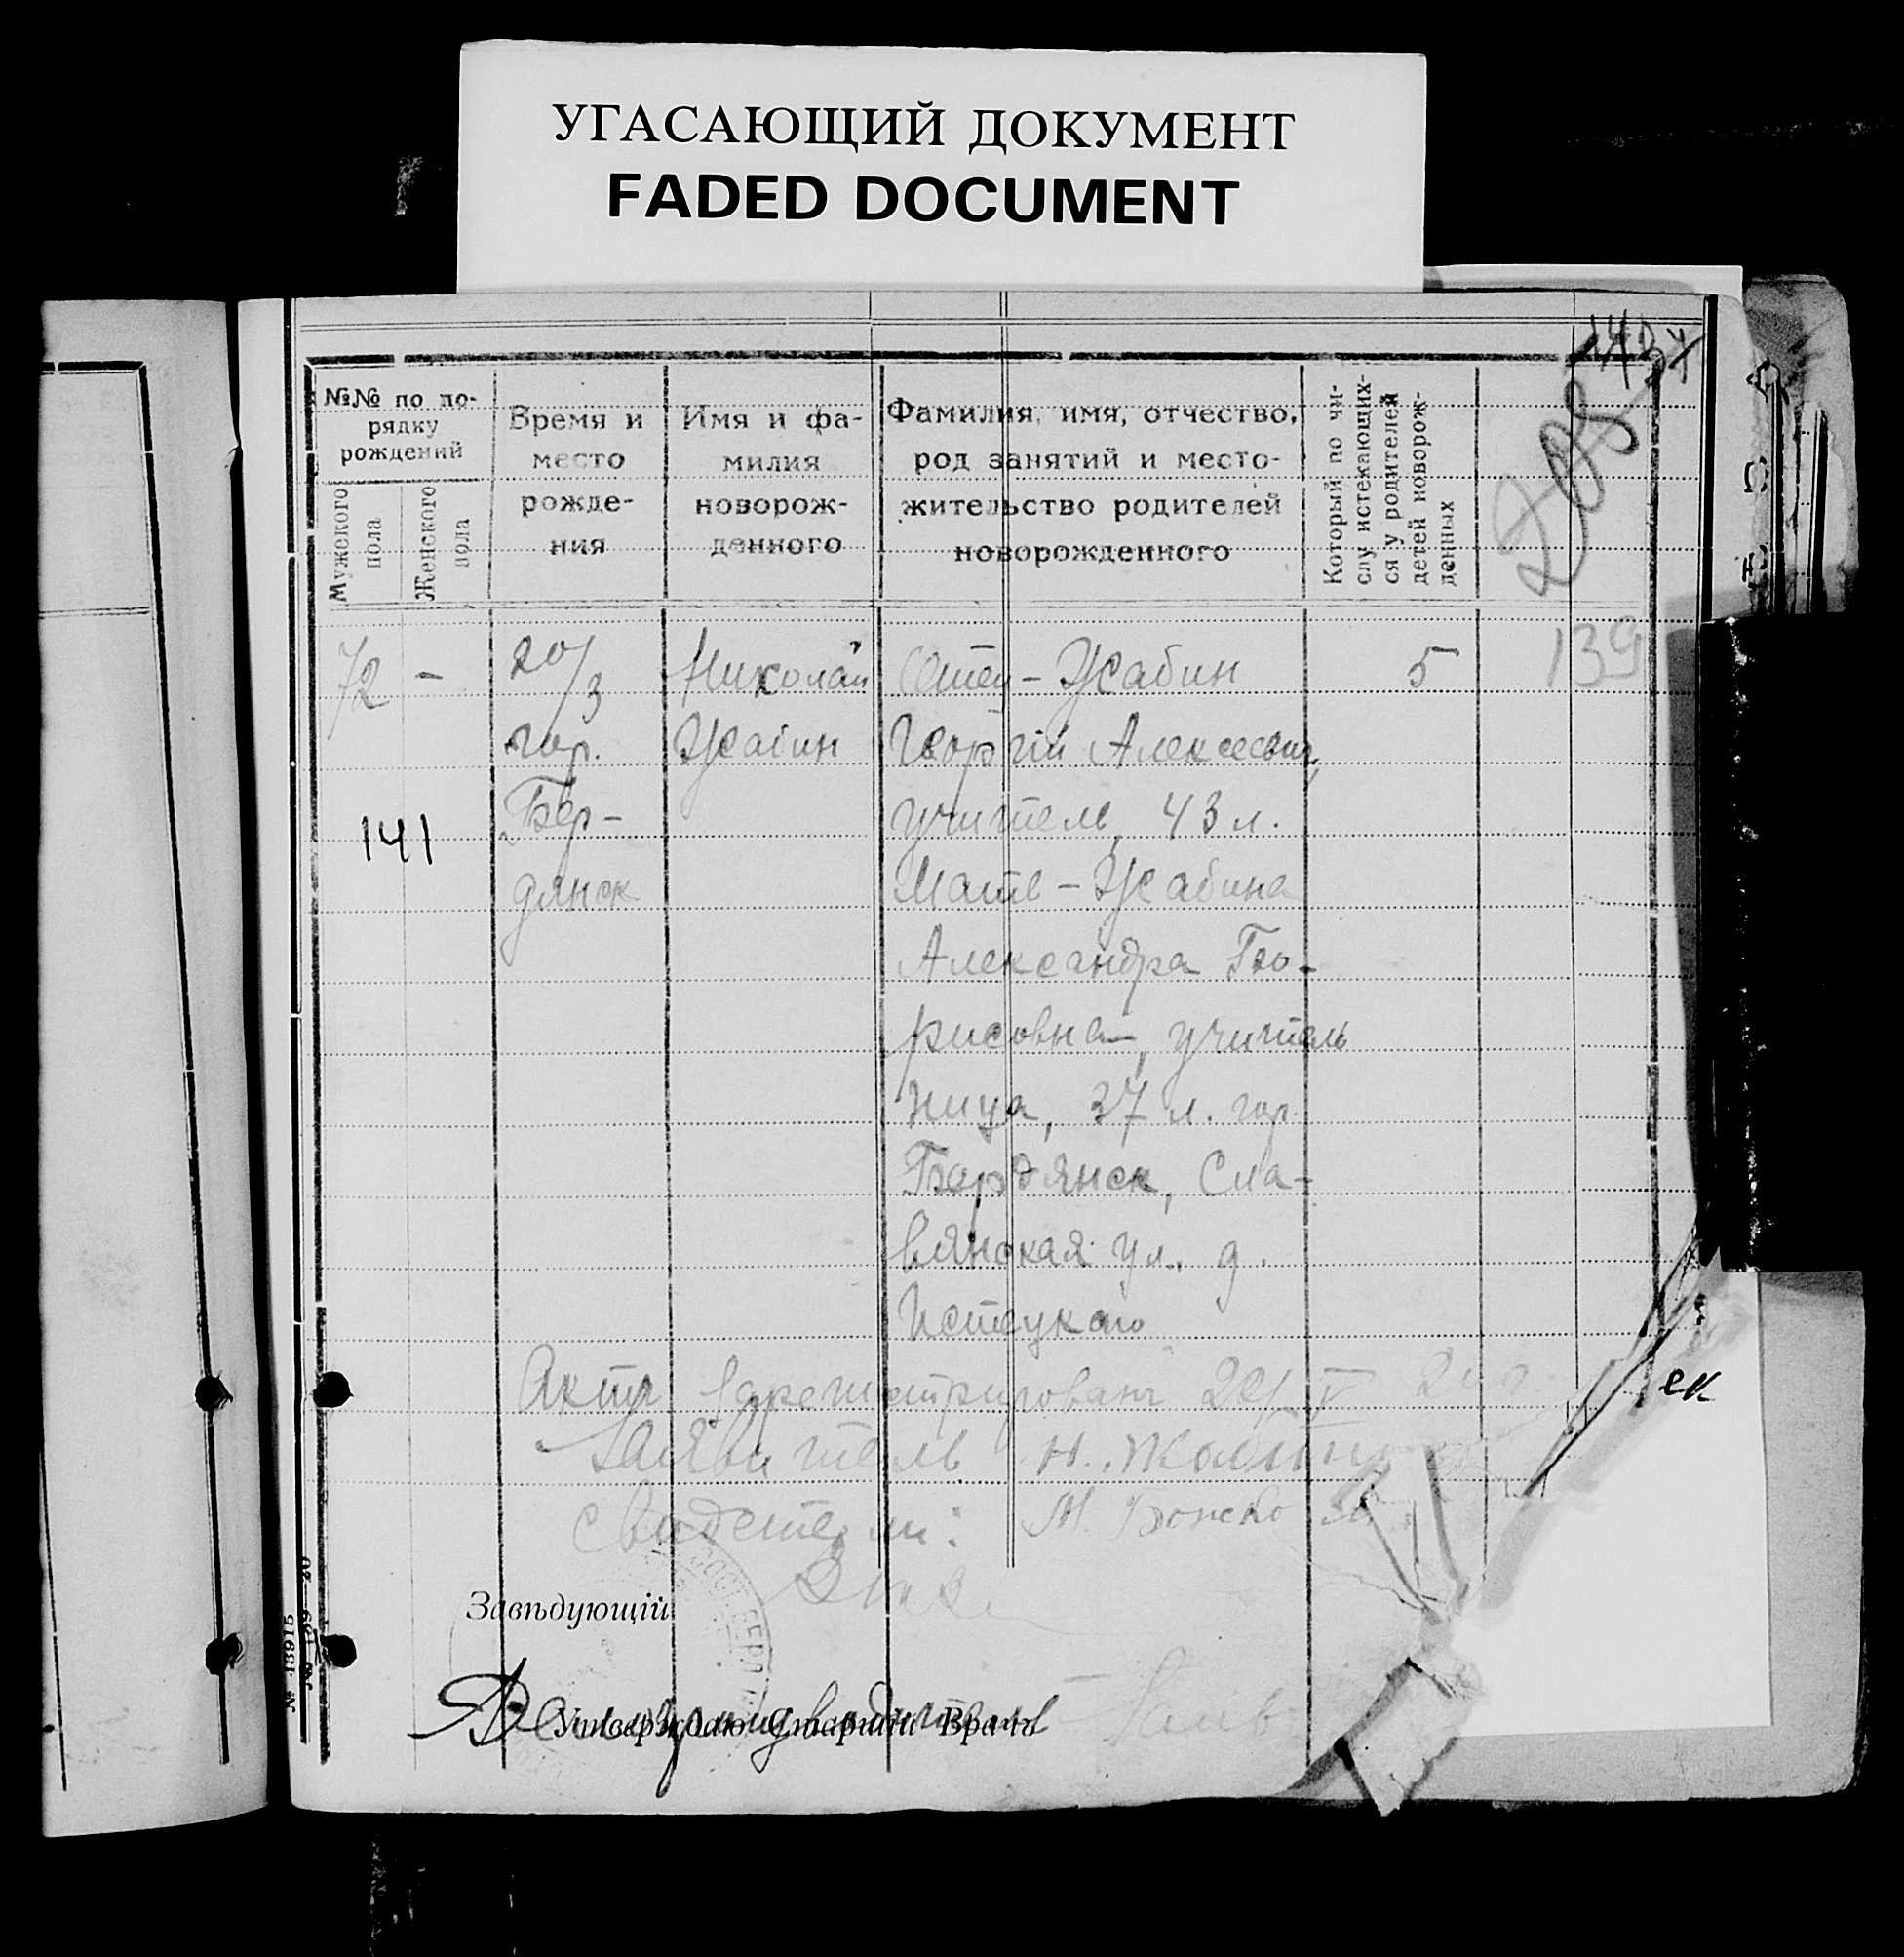 УГАСАЮЩИЙ ДОКУМЕНТ
FADED DOCUMENT
№№ по по-
рядку
рождений
Мужеского
пола
Женского
пола
Время и
место
рожде-
ния
Имя и фа-
милия
новорож-
денного
Фамилия, имя, отчество,
род занятий и место-
жительство родителей
новорожденного
Который по чи-
слу истекающих-
ся у родителей
детей новорож-
денных
208
139
72
-
20/3
гор.
Бер-
дянск
141
Николай
Жабин
Отец - Жабин
Георгій Алексеевич,
учитель, 43 л.
Мать - Жабина
Александра Бо-
рисовна, учитель
ница, 37 л. гор.
Бердянск, Сла-
вянская ул. д.
5
Актъ зарегистрированъ
Заявитель Н. Жабин
свидетели: М.
ек
Завѣдующій
Утверждаю Старшій Врачъ
№ 13915